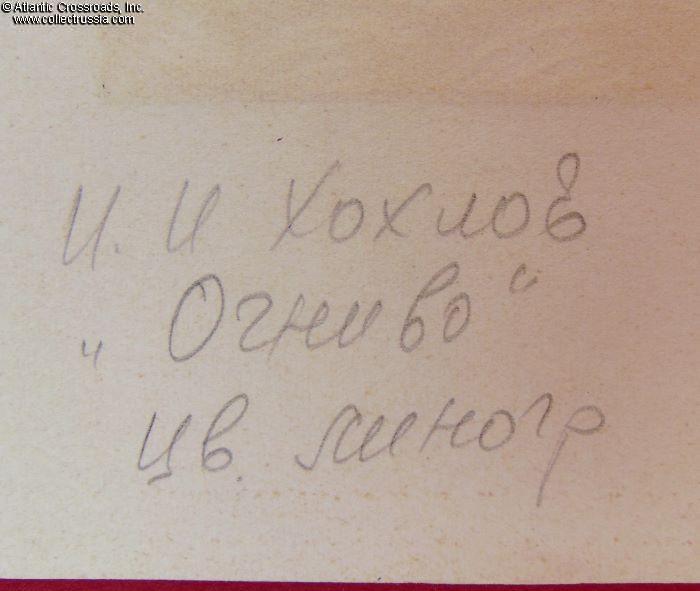 © Atlantic Crossroads, Inc.
www.collectrussia.com
И. И Хохлов
„Огниво“
цв. линогр